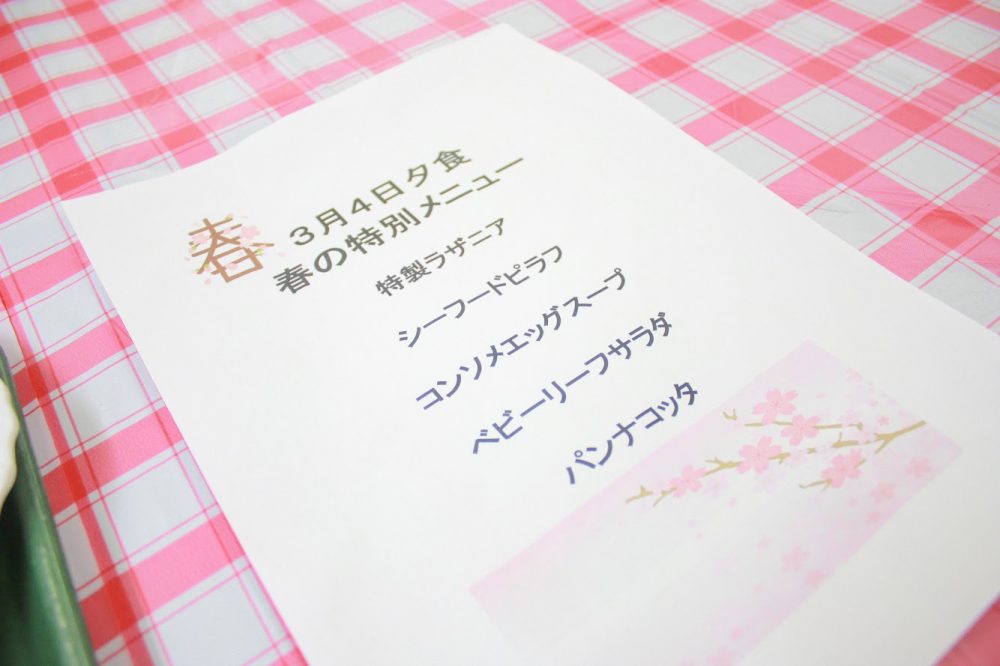 春
3月4日夕食
春の特別メニュー
特製ラザニア
シーフードピラフ
コンソメエッグスープ
ベビーリーフサラダ
パンナコッタ